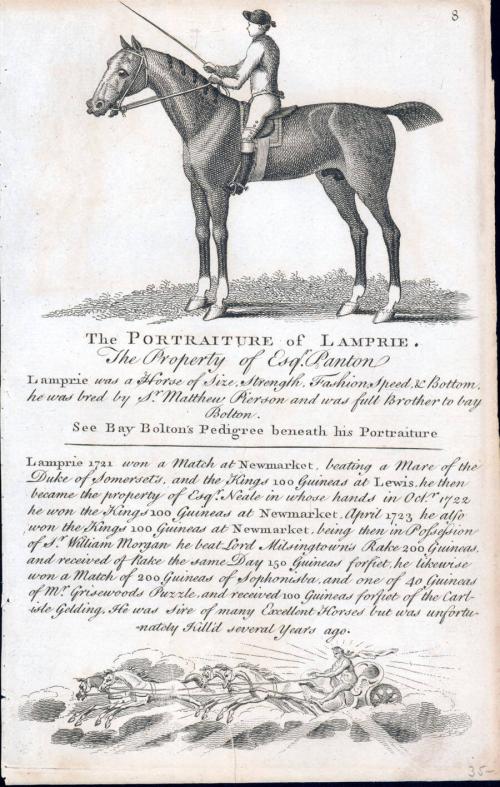 8
The PORTRAITURE of LAMPRIE.
The Property of Esqr. Panton
Lamprie was a Horse of Size, Strength, Fashion, Speed, & Bottom,
he was bred by Sr. Matthew Pierson and was full Brother to bay
Bolton.
See Bay Bolton's Pedigree beneath his Portraiture
Lamprie 1721 won a Match at Newmarket, beating a Mare of the
Duke of Somerset's, and the Kings 100 Guineas at Lewis, he then
became the property of Esqr. Neale in whose hands in Octr. 1722
he won the Kings 100 Guineas at Newmarket, April 1723 he also
won the Kings 100 Guineas at Newmarket, being then in Possession
of Sr. William Morgan he beat Lord Milsingtown's Rake 200 Guineas,
and received of Rake the same Day 150 Guineas forfiet, he likewise
won a Match of 200 Guineas of Sophonisba, and one of 40 Guineas
of Mr. Grisewoods Puzzle, and received 100 Guineas forfiet of the Carl-
isle Gelding, He was Sire of many Excellent Horses but was unfortu-
nately Kill'd several Years ago.
35-